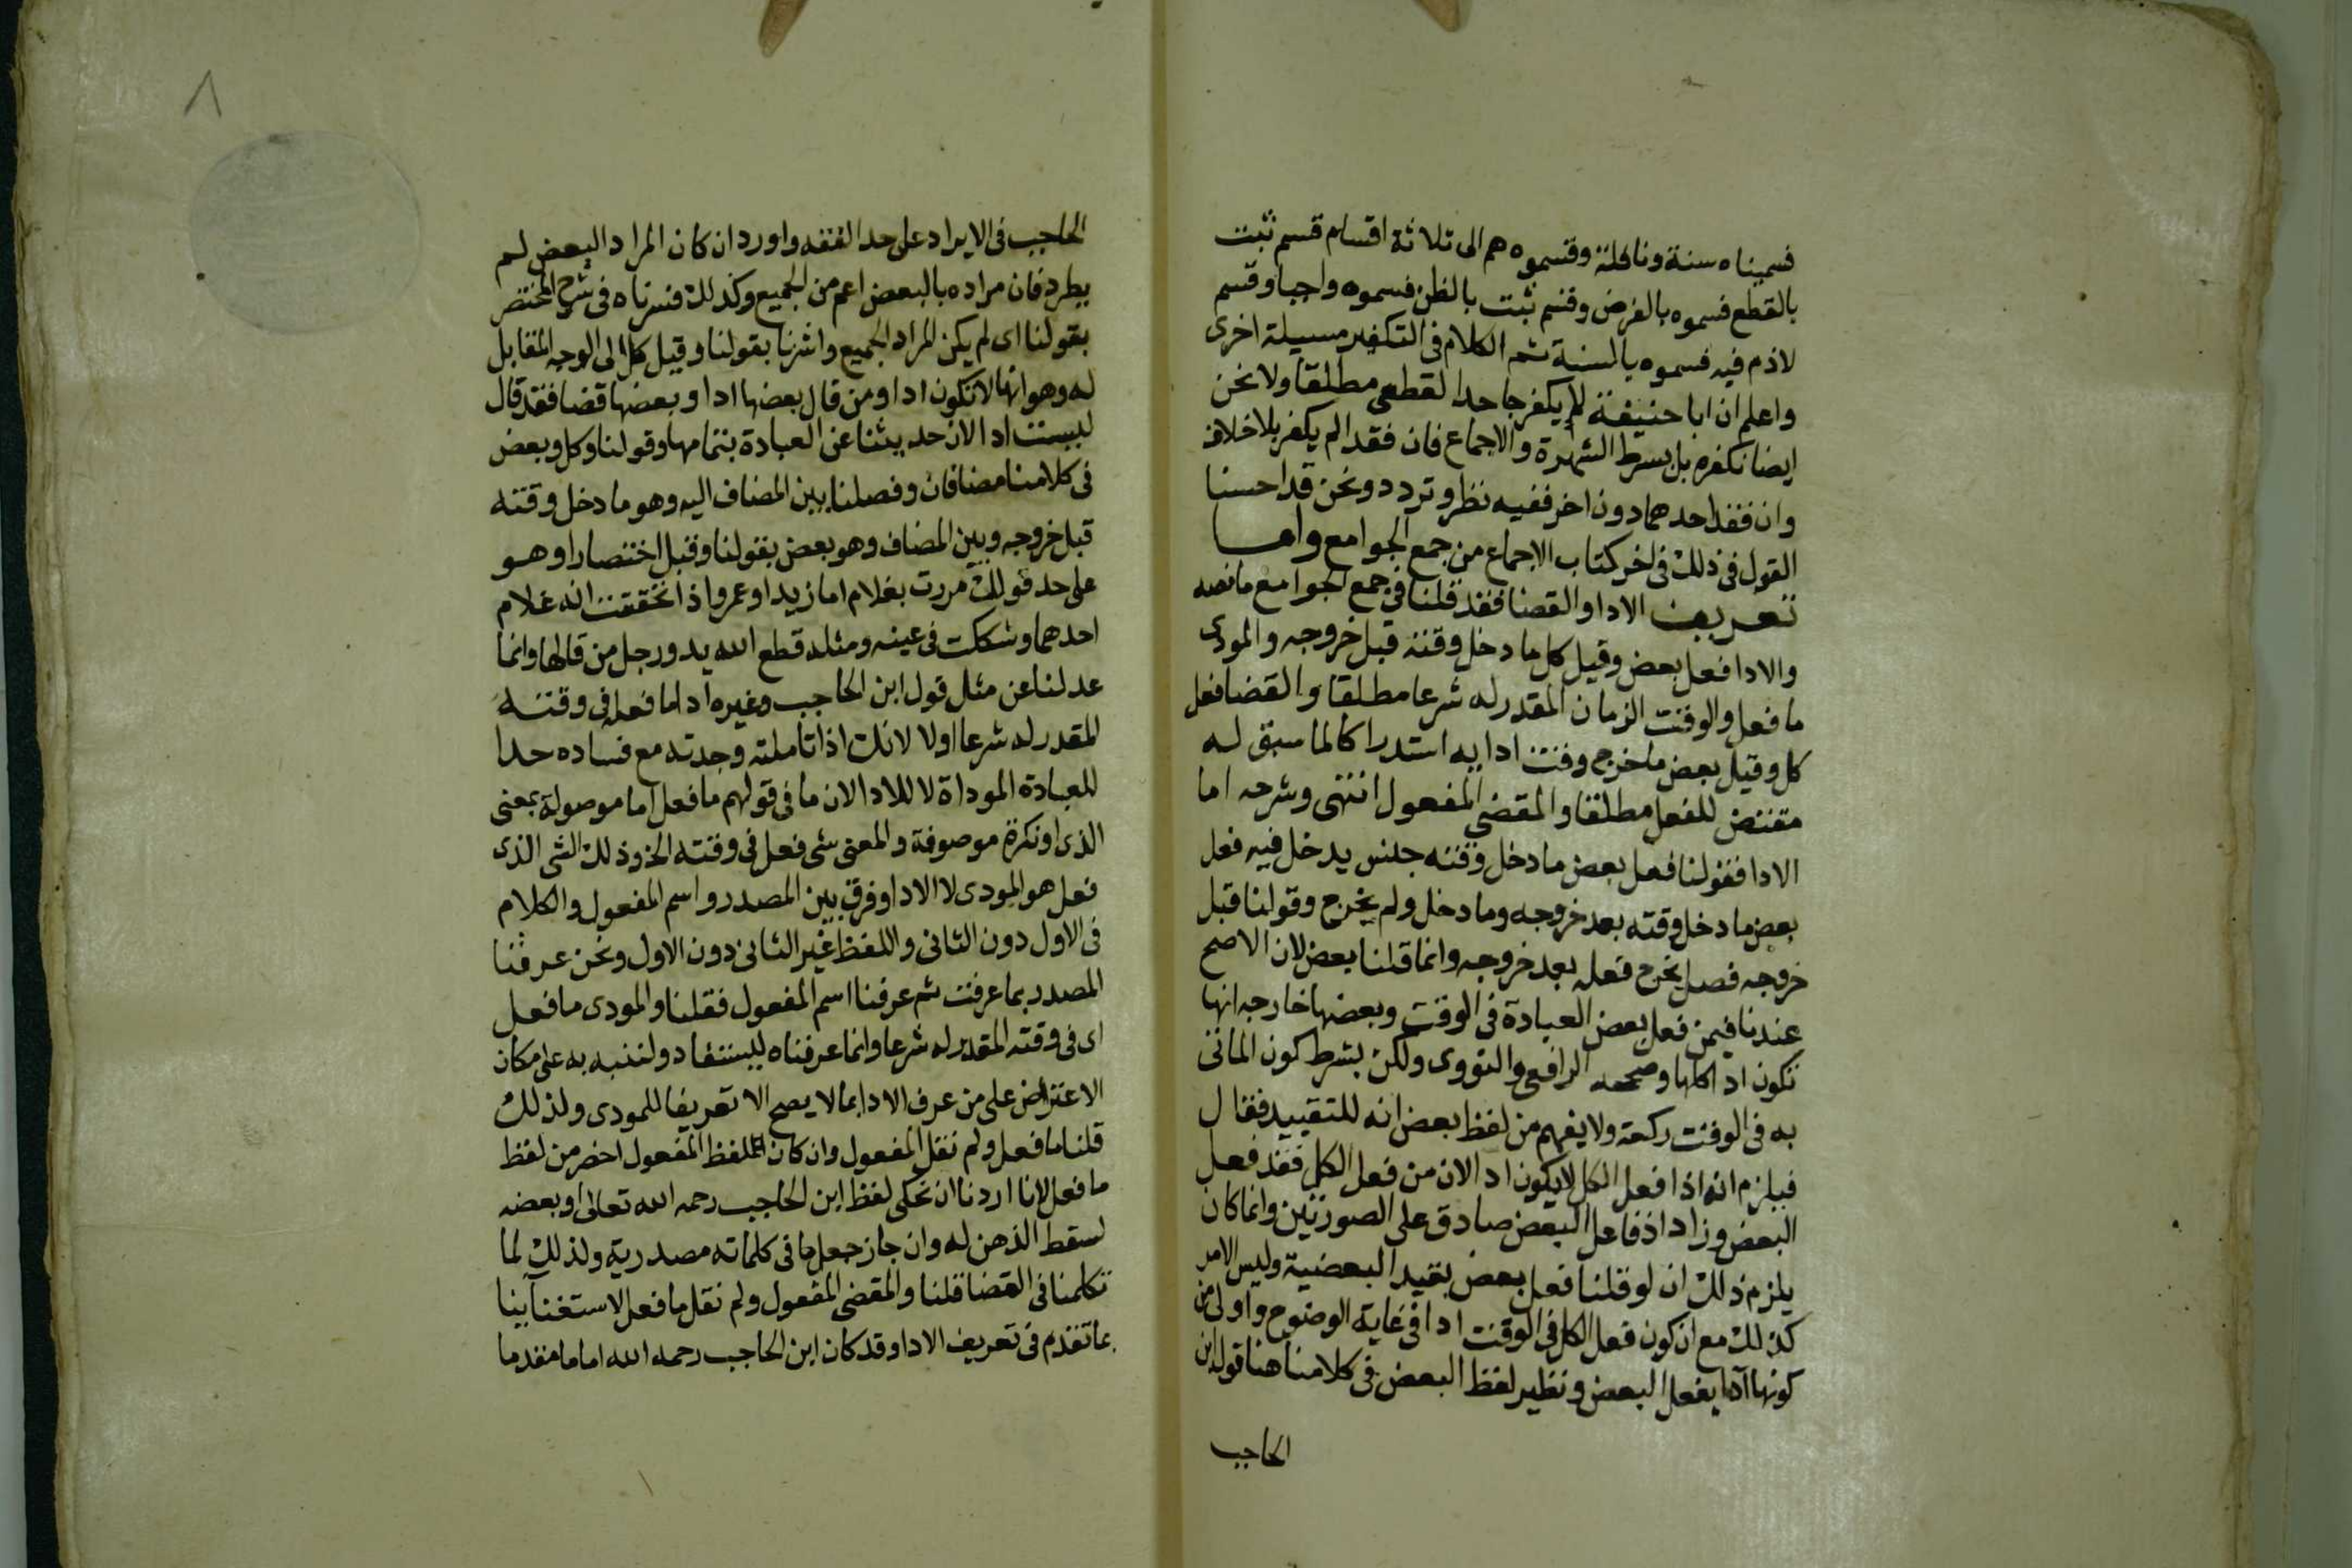 فسميناه سنة ونافلة وقسموه هم الى ثلاثة اقسام قسم ثبت
بالقطع فسموه بالفرض وقسم ثبت بالظن فسموه واجبا وقسم
لاذم فيه فسموه بالسنة ثم الكلام في التكفير مسيلة اخرى
واعلم ان ابا حنيفة لا يكفر جاحد القطعى مطلقا ولا نحن
ايضا نكفره بل بشرط الشهرة والاجماع فان فقدا لم يكفر بلا خلاف
وان فقد احدهما دون اخر ففيه نظر وتردد ونحن قد احسنا
القول في ذلك في اخر كتاب الاجماع من جمع الجوامع واما
تعريف الادا والقضا فقد قلنا في جمع الجوامع ما نصه
والادا فعل بعض وقيل كل ما دخل وقته قبل خروجه والمودى
ما فعل والوقت الزمان المقدر له شرعا مطلقا والقضا فعل
كل وقيل بعض ما خرج وقت ادايه استدراكا لما سبق له
مقتض للفعل مطلقا والمقضي المفعول انتهى وشرحه اما
الادا فقولنا فعل بعض ما دخل وقته جنس يدخل فيه فعل
بعض ما دخل وقته بعد خروجه وما دخل ولم يخرج وقولنا قبل
خروجه فصل يخرج فعله بعد خروجه وانما قلنا بعض لان الاصح
عندنا فيمن فعل بعض العبادة في الوقت وبعضها خارجه انها
تكون ادا كلها وصححه الرافعي والنووى ولكن بشرط كون الماتى
به في الوقت ركعة ولا يفهم من لفظ بعض انه للتقييد فقال
فيلزم انه اذا فعل الكل لا يكون ادا لان من فعل الكل فقد فعل
البعض وزاد اذ فاعل البعض صادق على الصورتين وانما كان
يلزم ذلك ان لو قلنا فعل بعض بقيد البعضية وليس الامر
كذلك مع ان كون فعل الكل في الوقت ادا في غاية الوضوح واولى من
كونها ادا بفعل البعض ونظير لفظ البعض في كلامنا هنا قول ابن
الحاجب
الحاجب في الايراد على حد الفقه واورد ان كان المراد البعض لم
يطرد فان مراده بالبعض اعم من الجميع وكذلك فسرناه في شرح المختصر
بقولنا اى لم يكن المراد الجميع واشرنا بقولنا وقيل كل الى الوجه المقابل
له وهو انها لا تكون ادا ومن قال بعضها ادا وبعضها قضا فقد قال
ليست ادا لان حديثنا عن العبادة بتمامها وقولنا وكل وبعض
في كلامنا مضافان وفصلنا بين المضاف اليه وهو ما دخل وقته
قبل خروجه وبين المضاف وهو بعض بقولنا وقيل اختصارا وهو
على حد قولك مررت بغلام اما زيد او عمرو اذا تحققت انه غلام
احدهما وشككت في عينه ومثله قطع الله يد ورجل من قالها وانما
عدلنا عن مثل قول ابن الحاجب وغيره ادا ما فعل في وقته
المقدر له شرعا اولا لانك اذا تاملته وجدته مع فساده حدا
للعبادة الموداة لا للادا لان ما في قولهم ما فعل اما موصولة بمعنى
الذى او نكرة موصوفة والمعنى شي فعل في وقته الخ وذلك الشي الذى
فعل هو المودى لا الادا وفرق بين المصدر واسم المفعول والكلام
في الاول دون الثاني واللفظ غير الثاني دون الاول ونحن عرفنا
المصدر بما عرفت ثم عرفنا اسم المفعول فقلنا والمودى ما فعل
اى في وقته المقدر له شرعا وانما عرفناه ليستفاد ولننبه به على مكان
الاعتراض على من عرف الادا بما لا يصح الا تعريفا للمودى ولذلك
قلنا ما فعل ولم نقل المفعول وان كان لفظ المفعول اخصر من لفظ
ما فعل لانا اردنا ان نحكى لفظ ابن الحاجب رحمه الله تعالى او بعضه
لسقط الذهن له وان جاز جعل ما في كلماته مصدرية ولذلك لما
تكلمنا في القضا قلنا والمقضى المفعول ولم نقل ما فعل لاستغناينا
بما تقدم في تعريف الادا وقد كان ابن الحاجب رحمه الله اماما مقدما